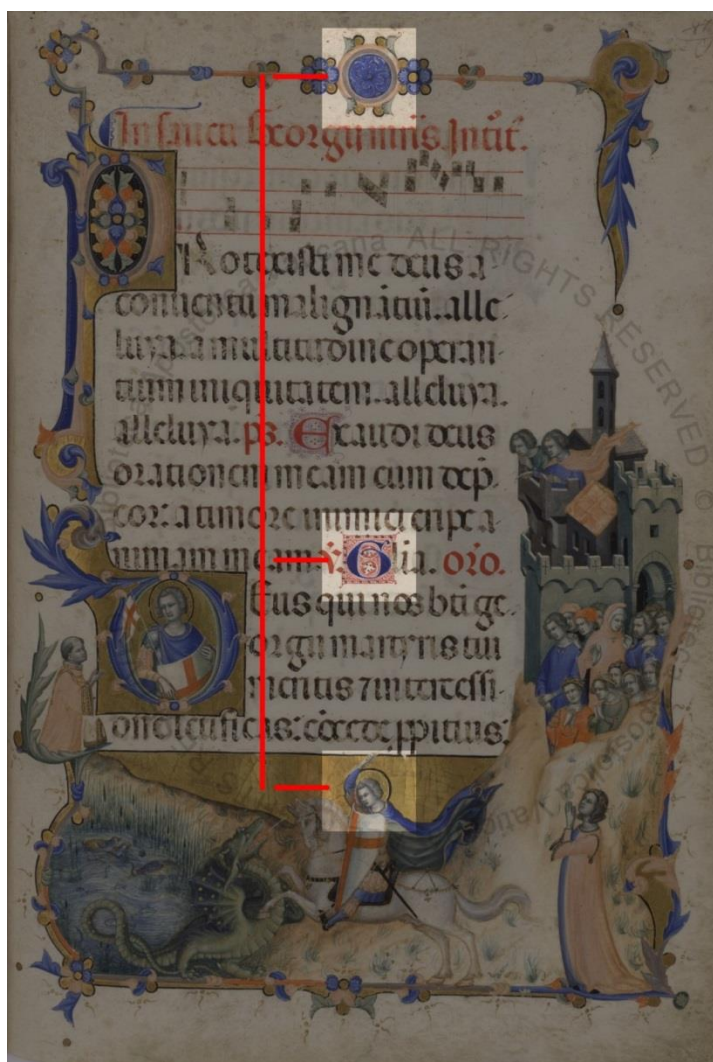 In sancti Georgii mris. Intit.
Protexisti me deus a
conuentu malignātiū. alle
luya. a multitudine operan
tium iniquitatem. alleluya.
alleluya. ps. Exaudi deus
orationem meam cum dep̄
cor: a timore inimici eripe a
nimam meam. ℣. Gl̄ia. or̄o.
Deus qui nos bt̄i ge
orgii martyris tui
meritis ⁊ intercessi
ALL RIGHTS RESERVED ©